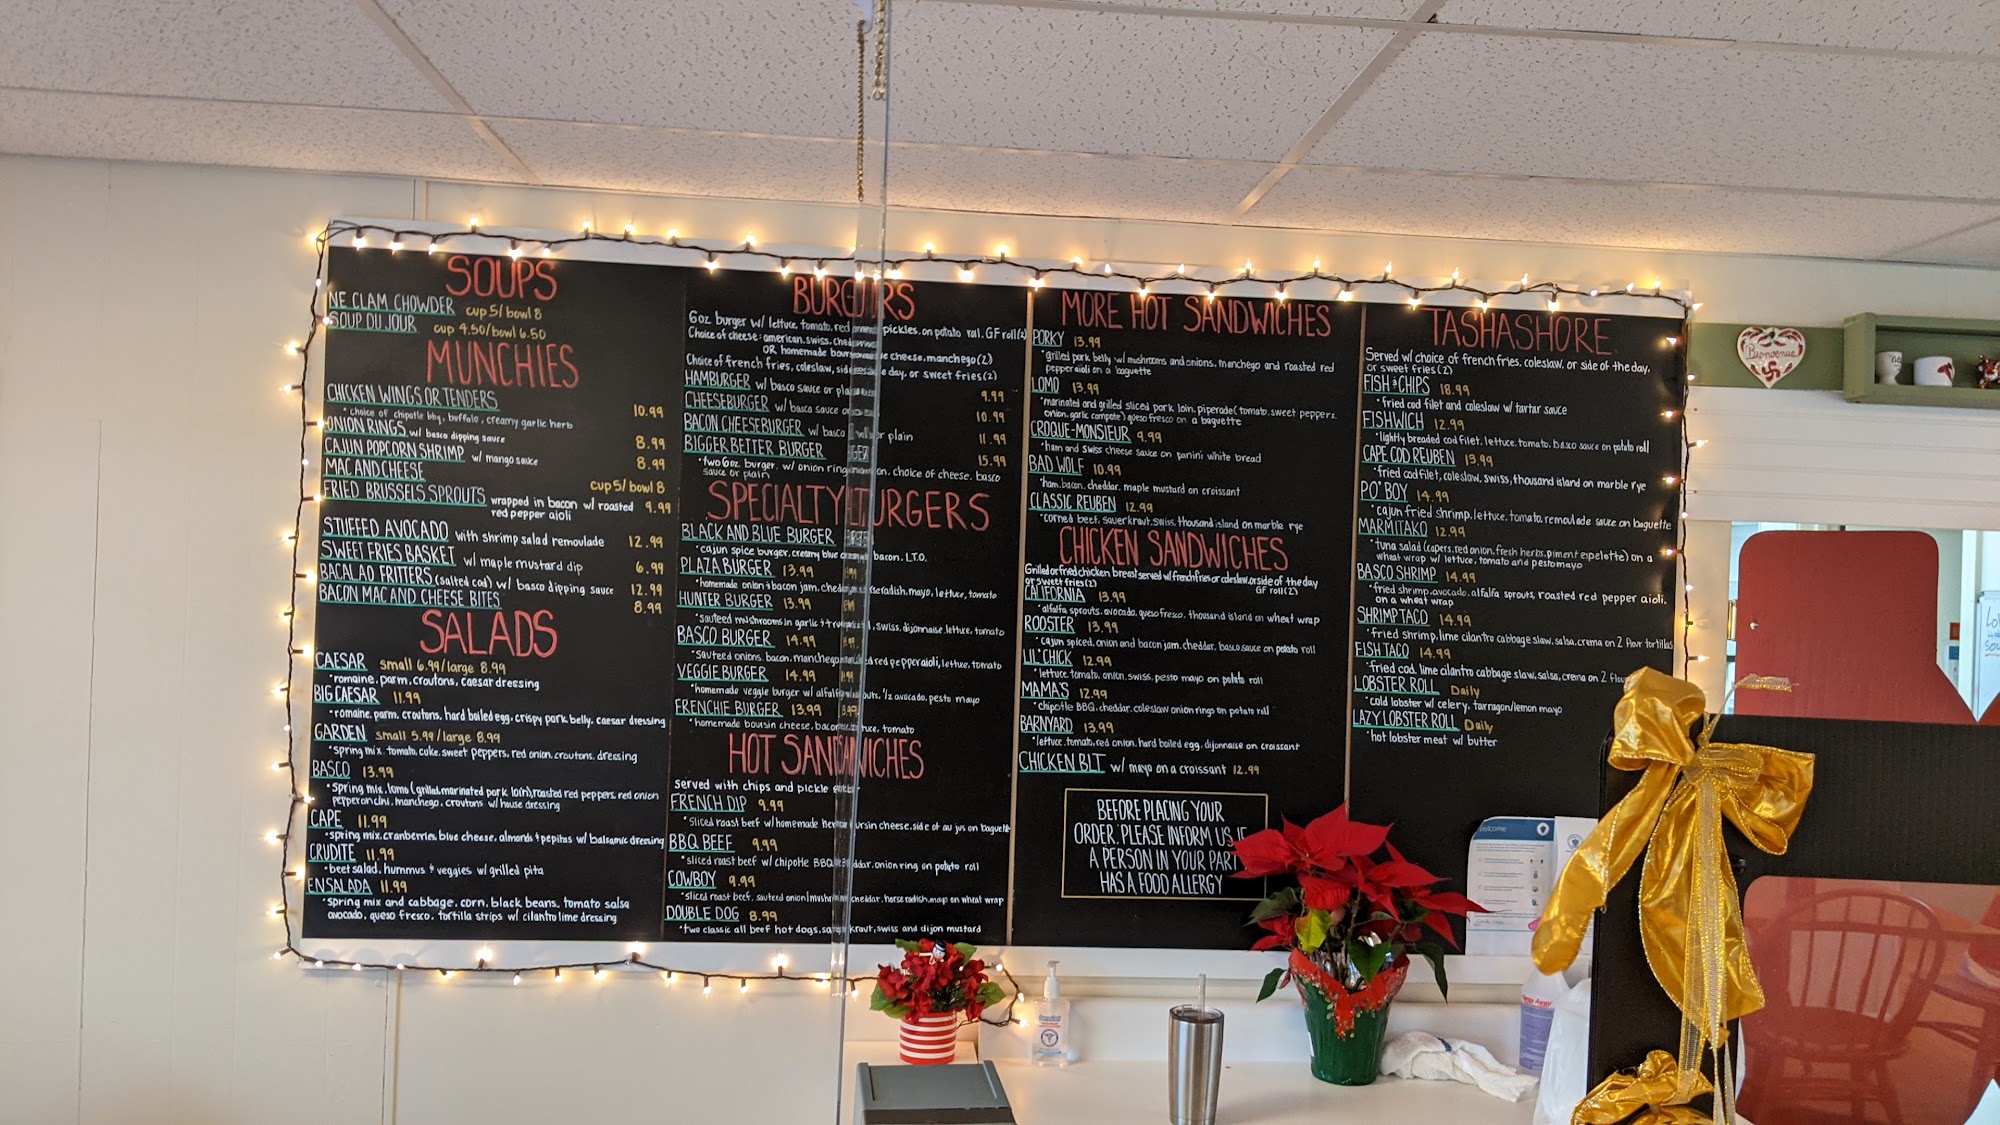 SOUPS
NE CLAM CHOWDER cup 5/ bowl 8
SOUP DU JOUR cup 4.50/bowl 6.50
MUNCHIES
CHICKEN WINGS OR TENDERS 10.99
*choice of chipotle bbq, buffalo, creamy garlic herb
ONION RINGS w/ basco dipping sauce 8.99
CAJUN POPCORN SHRIMP w/ mango sauce 8.99
MAC AND CHEESE cup 5/ bowl 8
FRIED BRUSSELS SPROUTS wrapped in bacon w/ roasted 9.99
red pepper aioli
STUFFED AVOCADO with shrimp salad remoulade 12.99
SWEET FRIES BASKET w/ maple mustard dip 6.99
BACALAO FRITTERS (salted cod) w/ basco dipping sauce 12.99
BACON MAC AND CHEESE BITES 8.99
SALADS
CAESAR small 6.99/large 8.99
*romaine, parm, croutons, caesar dressing
BIG CAESAR 11.99
*romaine, parm, croutons, hard boiled egg, crispy pork belly, caesar dressing
GARDEN small 5.99/large 8.99
*spring mix, tomato, cuke, sweet peppers, red onion, croutons, dressing
BASCO 13.99
*spring mix, lomo (grilled, marinated pork loin), roasted red peppers, red onion
pepperoncini, manchego, croutons w/ house dressing
CAPE 11.99
*spring mix, cranberries, blue cheese, almonds + pepitas w/ balsamic dressing
CRUDITE 11.99
*beet salad, hummus + veggies w/ grilled pita
ENSALADA 11.99
*spring mix and cabbage, corn, black beans, tomato salsa
avocado, queso fresco, tortilla strips w/ cilantro lime dressing
BURGERS
6oz burger w/ lettuce, tomato, red pickles, on potato roll, GF roll(2)
Choice of cheese: american, swiss,
OR homemade cheese, manchego(2)
Choice of french fries, coleslaw, side day, or sweet fries(2)
HAMBURGER w/ basco sauce or 9.99
CHEESEBURGER w/ basco sauce 10.99
BACON CHEESEBURGER w/ basco or plain 11.99
BIGGER BETTER BURGER 15.99
*two 6oz burger, w/ onion ring, choice of cheese, basco
sauce or plain
SPECIALTY BURGERS
BLACK AND BLUE BURGER
*cajun spice burger, creamy blue bacon, L.T.O.
PLAZA BURGER 13.99
*homemade onion + bacon jam, mayo, lettuce, tomato
HUNTER BURGER 13.99
*sauteed mushrooms in garlic + swiss, dijonnaise, lettuce, tomato
BASCO BURGER 14.99
*sauteed onions, bacon, manchego red pepper aioli, lettuce, tomato
VEGGIE BURGER 14.99
*homemade veggie burger w/ 1/2 avocado, pesto mayo
FRENCHIE BURGER 13.99
*homemade boursin cheese, tomato
HOT SANDWICHES
served with chips and pickle
FRENCH DIP 9.99
*Sliced roast beef w/ homemade cheese, side of au jus on baguette
BBQ BEEF 9.99
*sliced roast beef w/ chipotle BBQ onion ring on potato roll
COWBOY 9.99
*sliced roast beef, sauteed onion/ cheddar, horseradish, mayo on wheat wrap
DOUBLE DOG 8.99
*two classic all beef hot dogs, swiss and dijon mustard
MORE HOT SANDWICHES
PORKY 13.99
*grilled pork belly w/ mushrooms and onions, manchego and roasted red
pepper aioli on a baguette
LOMO 13.99
*marinated and grilled sliced pork loin, piperade (tomato, sweet peppers,
onion, garlic compote) queso fresco on a baguette
CROQUE-MONSIEUR 9.99
*ham and swiss cheese sauce on panini white bread
BAD WOLF 10.99
*ham, bacon, cheddar, maple mustard on croissant
CLASSIC REUBEN 12.99
*corned beef, sauerkraut, swiss, thousand island on marble rye
CHICKEN SANDWICHES
Grilled or fried chicken breast served w/ french fries or coleslaw, or side of the day
or sweet fries(2) GF roll(2)
CALIFORNIA 13.99
*alfalfa sprouts, avocado, queso fresco, thousand island on wheat wrap
ROOSTER 13.99
*cajun spiced, onion and bacon jam, cheddar, basco sauce on potato roll
LIL' CHICK 12.99
*lettuce, tomato, onion, swiss, pesto mayo on potato roll
MAMA'S 12.99
*chipotle BBQ, cheddar, coleslaw onion rings on potato roll
BARNYARD 13.99
*lettuce, tomato, red onion, hard boiled egg, dijonnaise on croissant
CHICKEN BLT w/ mayo on a croissant 12.99
BEFORE PLACING YOUR
ORDER, PLEASE INFORM US IF
A PERSON IN YOUR PART
HAS A FOOD ALLERGY
TASHASHORE
Served w/ choice of french fries, coleslaw, or side of the day,
or sweet fries(2)
FISH & CHIPS 18.99
*fried cod filet and coleslaw w/ tartar sauce
FISHWICH 12.99
*lightly breaded cod filet, lettuce, tomato, basco sauce on potato roll
CAPE COD REUBEN 13.99
*fried cod filet, coleslaw, swiss, thousand island on marble rye
PO' BOY 14.99
*cajun fried shrimp, lettuce, tomato, remoulade sauce on baguette
MARMITAKO 12.99
*tuna salad (capers, red onion, fresh herbs, piment espelette) on a
wheat wrap w/ lettuce, tomato and pesto mayo
BASCO SHRIMP 14.99
*fried shrimp, avocado, alfalfa sprouts, roasted red pepper aioli,
on a wheat wrap
SHRIMP TACO 14.99
*fried shrimp, lime cilantro cabbage slaw, salsa, crema on 2 flour tortillas
FISH TACO 14.99
*fried cod, lime cilantro cabbage slaw, salsa, crema on 2
LOBSTER ROLL Daily
*cold lobster w/ celery, tarragon/lemon mayo
LAZY LOBSTER ROLL Daily
*hot lobster meat w/ butter
Bienvenue